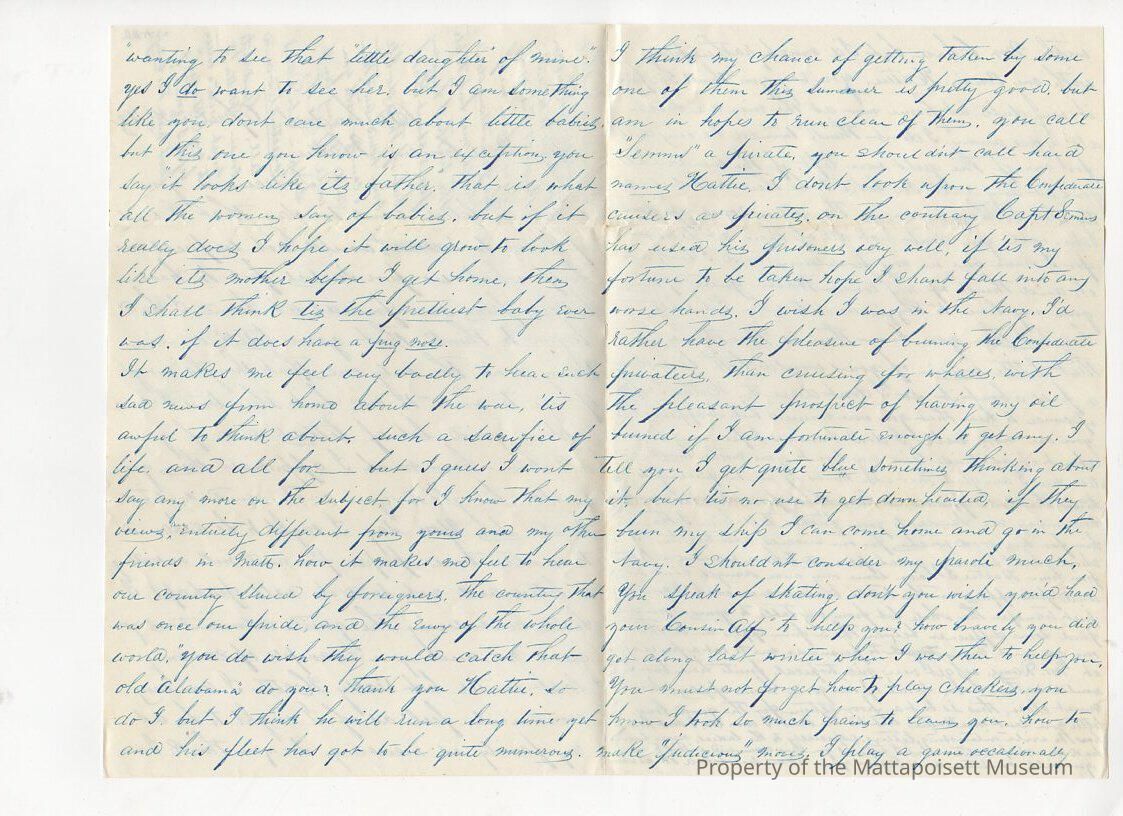 "wanting to see that "little daughter" of mine."
yes I do want to see her, but I am something
like you dont care much about little babies
but this one you know is an exception, you
say "it looks like its father, that is what
all the women say of babies, but if it
really does I hope it will grow to look
like its mother before I get home, then
I shall think tis the prettiest baby ever
was, if it does have a pug nose.
It makes me feel very badly to hear such
sad news from home about the war, 'tis
awful to think about, such a sacrifice of
life, and all for—— but I guess I wont
say any more on the subject, for I know that my
views, entirely different from yours and my other
friends in Matt. how it makes me feel to hear
our country slured by foreigners, the country that
was once our pride, and the envy of the whole
world, "you do wish they would catch that
old "Alabama" do you? thank you Hattie, so
do I, but I think he will run a long time yet
and his fleet has got to be quite numerous.
I think my chance of getting taken by some
one of them this summer is pretty good, but
am in hopes to run clear of them. you call
"Semms" a pirate, you shouldnt call hard
names Hattie, I dont look upon the Confederate
cruisers as pirates, on the contrary Capt Semms
has used his prisoners very well, if 'tis my
fortune to be taken hope I shant fall into any
worse hands. I wish I was in the Navy, I'd
rather have the pleasure of burning the Confederate
privateers, than cruising for whales, with
the pleasant prospect of having my oil
burned if I am fortunate enough to get any. I
tell you I get quite blue sometimes thinking about
it, but 'tis no use to get downhearted, if they
burn my ship I can come home and go in the
Navy. I shouldn't consider my parole much,
You speak of skating, don't you wish you'd had
your "Cousin Alf" to help you? how bravely you did
get along last winter when I was there to help you.
You must not forget how to play checkers, you
know I took so much pains to learn you, how to
make "Judicious" moves, I play a game occasionally
Property of the Mattapoisett Museum